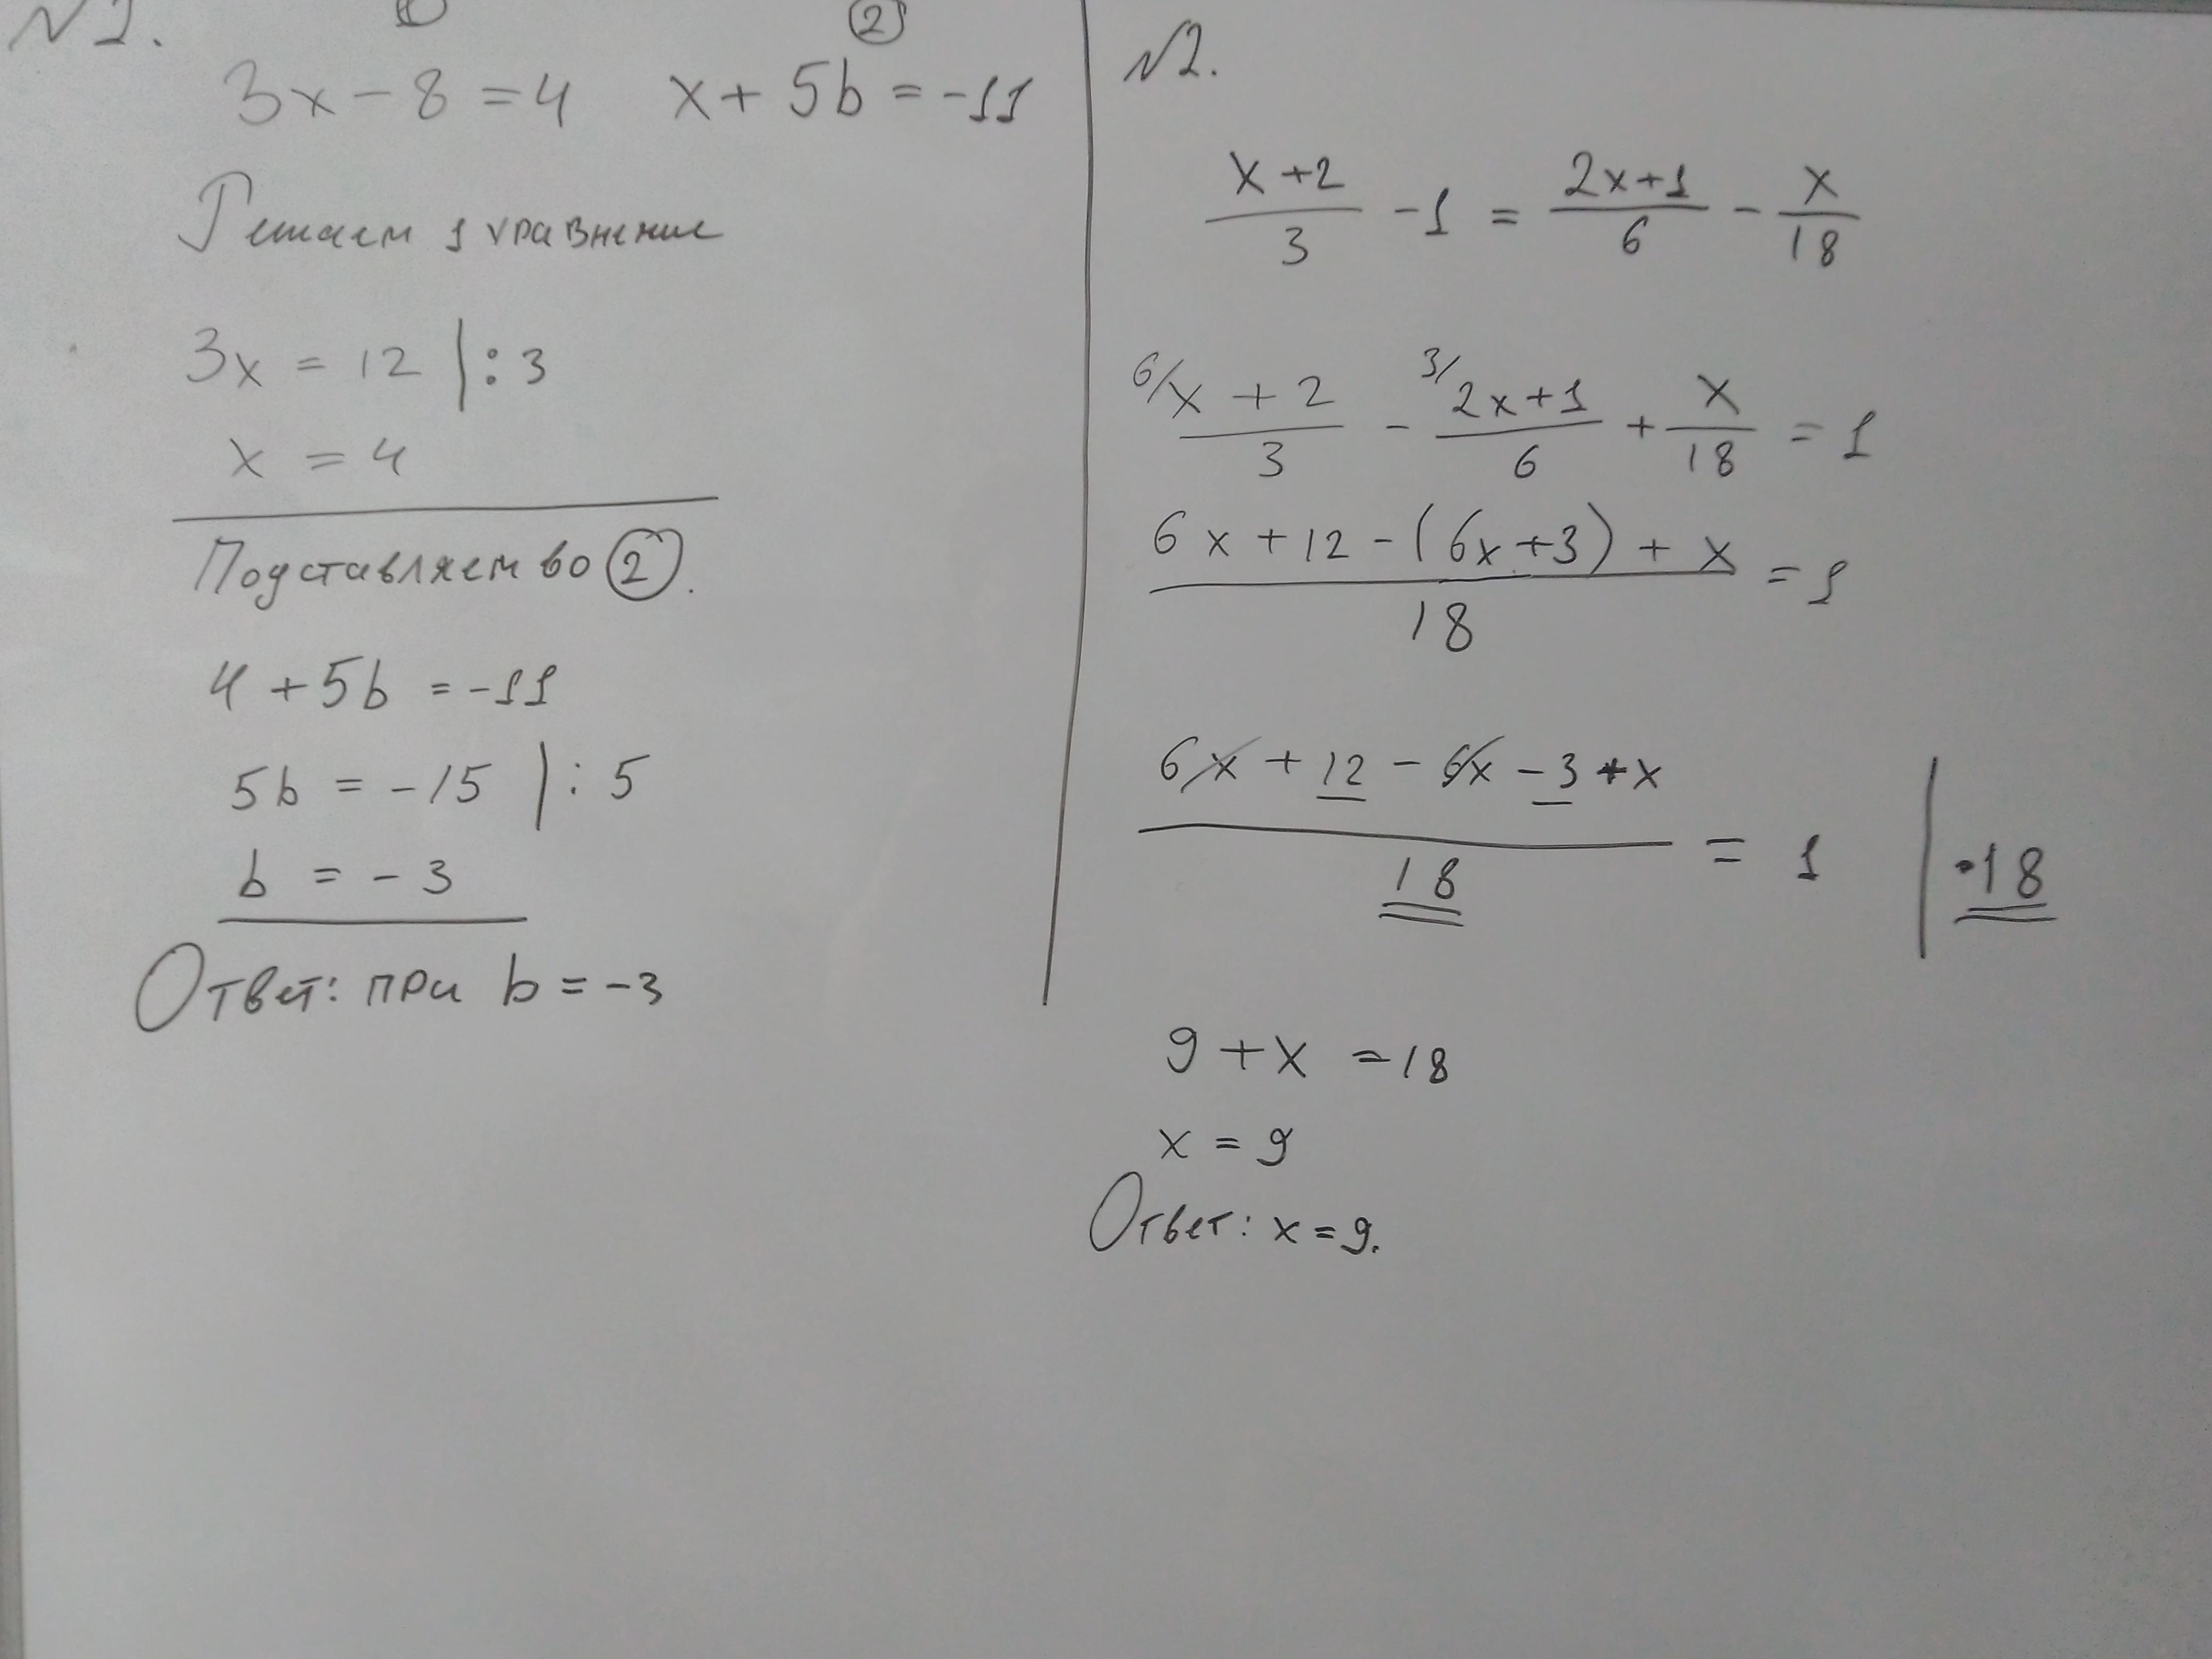 №1. ① ②
3x - 8 = 4 x + 5b = -11
Решаем 1 уравнение
3x = 12 | : 3
x = 4
Подставляем во ②.
4 + 5b = -11
5b = -15 | : 5
b = -3
Ответ: при b = -3
№2.
(x+2)/3 - 1 = (2x+1)/6 - x/18
6/ (x+2)/3 - 3/ (2x+1)/6 + x/18 = 1
(6x + 12 - (6x+3) + x)/18 = 1
(6x + 12 - 6x - 3 + x)/18 = 1 | ·18
9 + x = 18
x = 9
Ответ: x = 9.